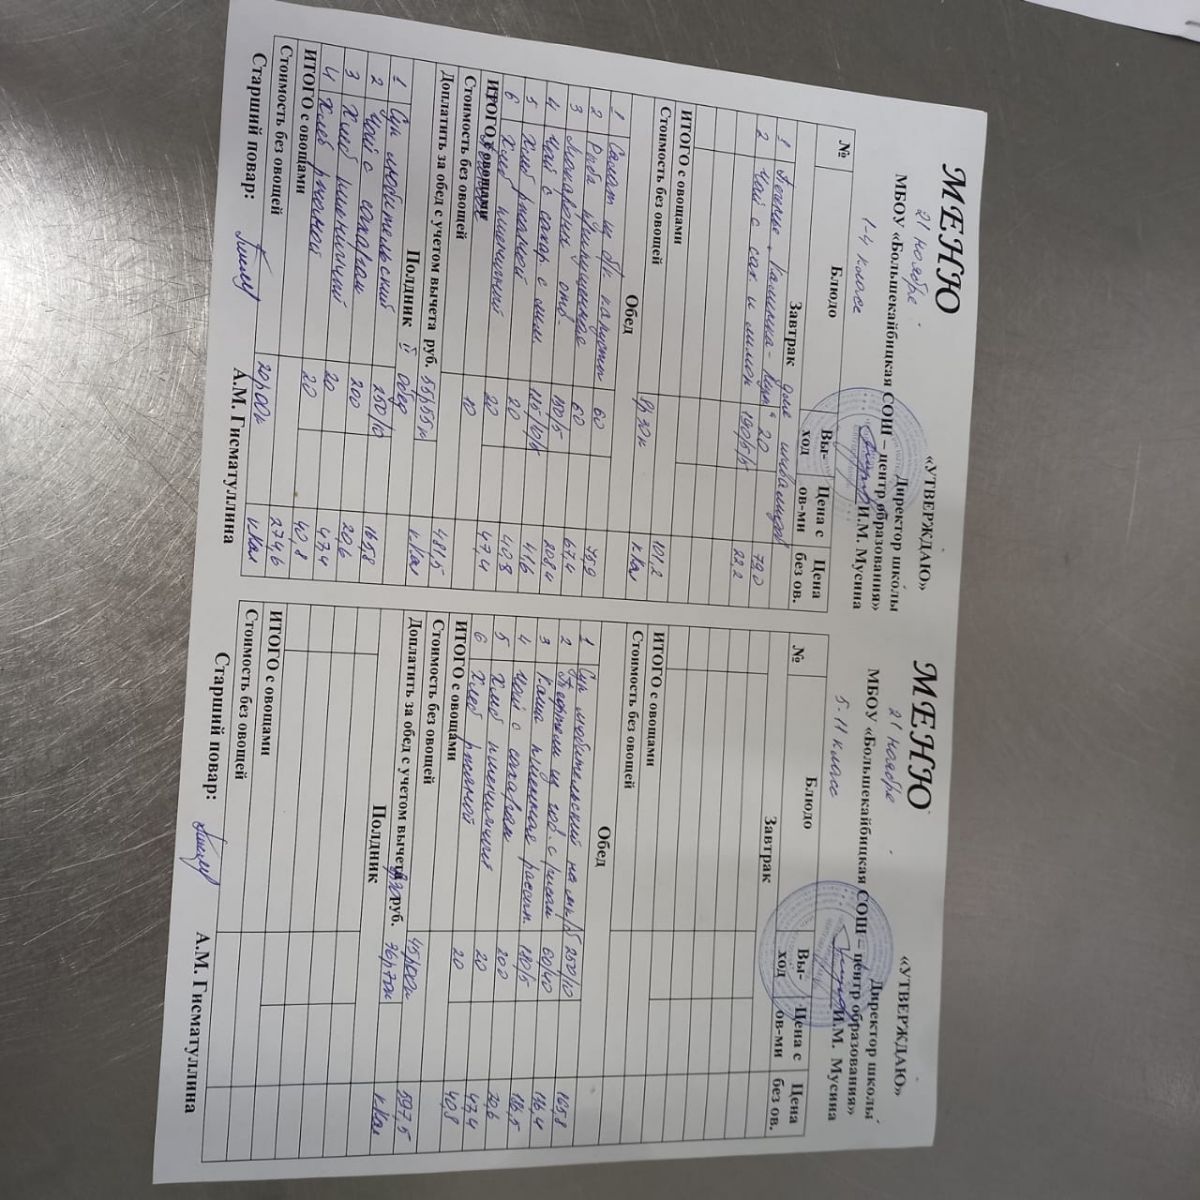 «УТВЕРЖДАЮ»
Директор школы
МБОУ «Большекайбицкая СОШ – центр образования»
И.М. Мусина
МЕНЮ
21 ноября
1-4 класс
№ Блюдо Вы-ход Цена с ов-ми Цена без ов.
Завтрак для инвалидов
1 20 79,0
2 Чай с сах. и лимон 190/5/5 22,2
ИТОГО с овощами 101,2
Стоимость без овощей 9р30к ккал
Обед
1 Салат из капусты 60 75,9
2 Рыба припущенная 60 67,4
3 Макароны отв. 150/5 208,4
4 Чай с сахар с лим. 41,6
5 Хлеб ржаной 20 40,8
6 Хлеб пшеничный 20 47,4
ИТОГО с овощами
Стоимость без овощей 10 481,5
Доплатить за обед с учетом вычета руб. 55р55к ккал
Полдник Обед
1 Суп любительский 250/10 165,8
2 Чай с сахаром 200 20,6
3 Хлеб пшеничный 20 47,4
4 Хлеб ржаной 20 40,8
ИТОГО с овощами 274,6
Стоимость без овощей 20р00к ккал
Старший повар: А.М. Гисматуллина
«УТВЕРЖДАЮ»
Директор школы
МБОУ «Большекайбицкая СОШ – центр образования»
И.М. Мусина
МЕНЮ
21 ноября
5-11 класс
№ Блюдо Вы-ход Цена с ов-ми Цена без ов.
Завтрак
ИТОГО с овощами
Стоимость без овощей
Обед
1 Суп любительский на 250/10 165,8
2 Тефтели из гов. с рисом 60/40 116,4
3 Каша пшенная рассып. 180/5 186,5
4 Чай с сахаром 200 20,6
5 Хлеб пшеничный 20 47,4
6 Хлеб ржаной 20 40,8
ИТОГО с овощами
Стоимость без овощей 45р00к 597,5
Доплатить за обед с учетом вычета руб. 36р70к ккал
Полдник
ИТОГО с овощами
Стоимость без овощей
Старший повар: А.М. Гисматуллина